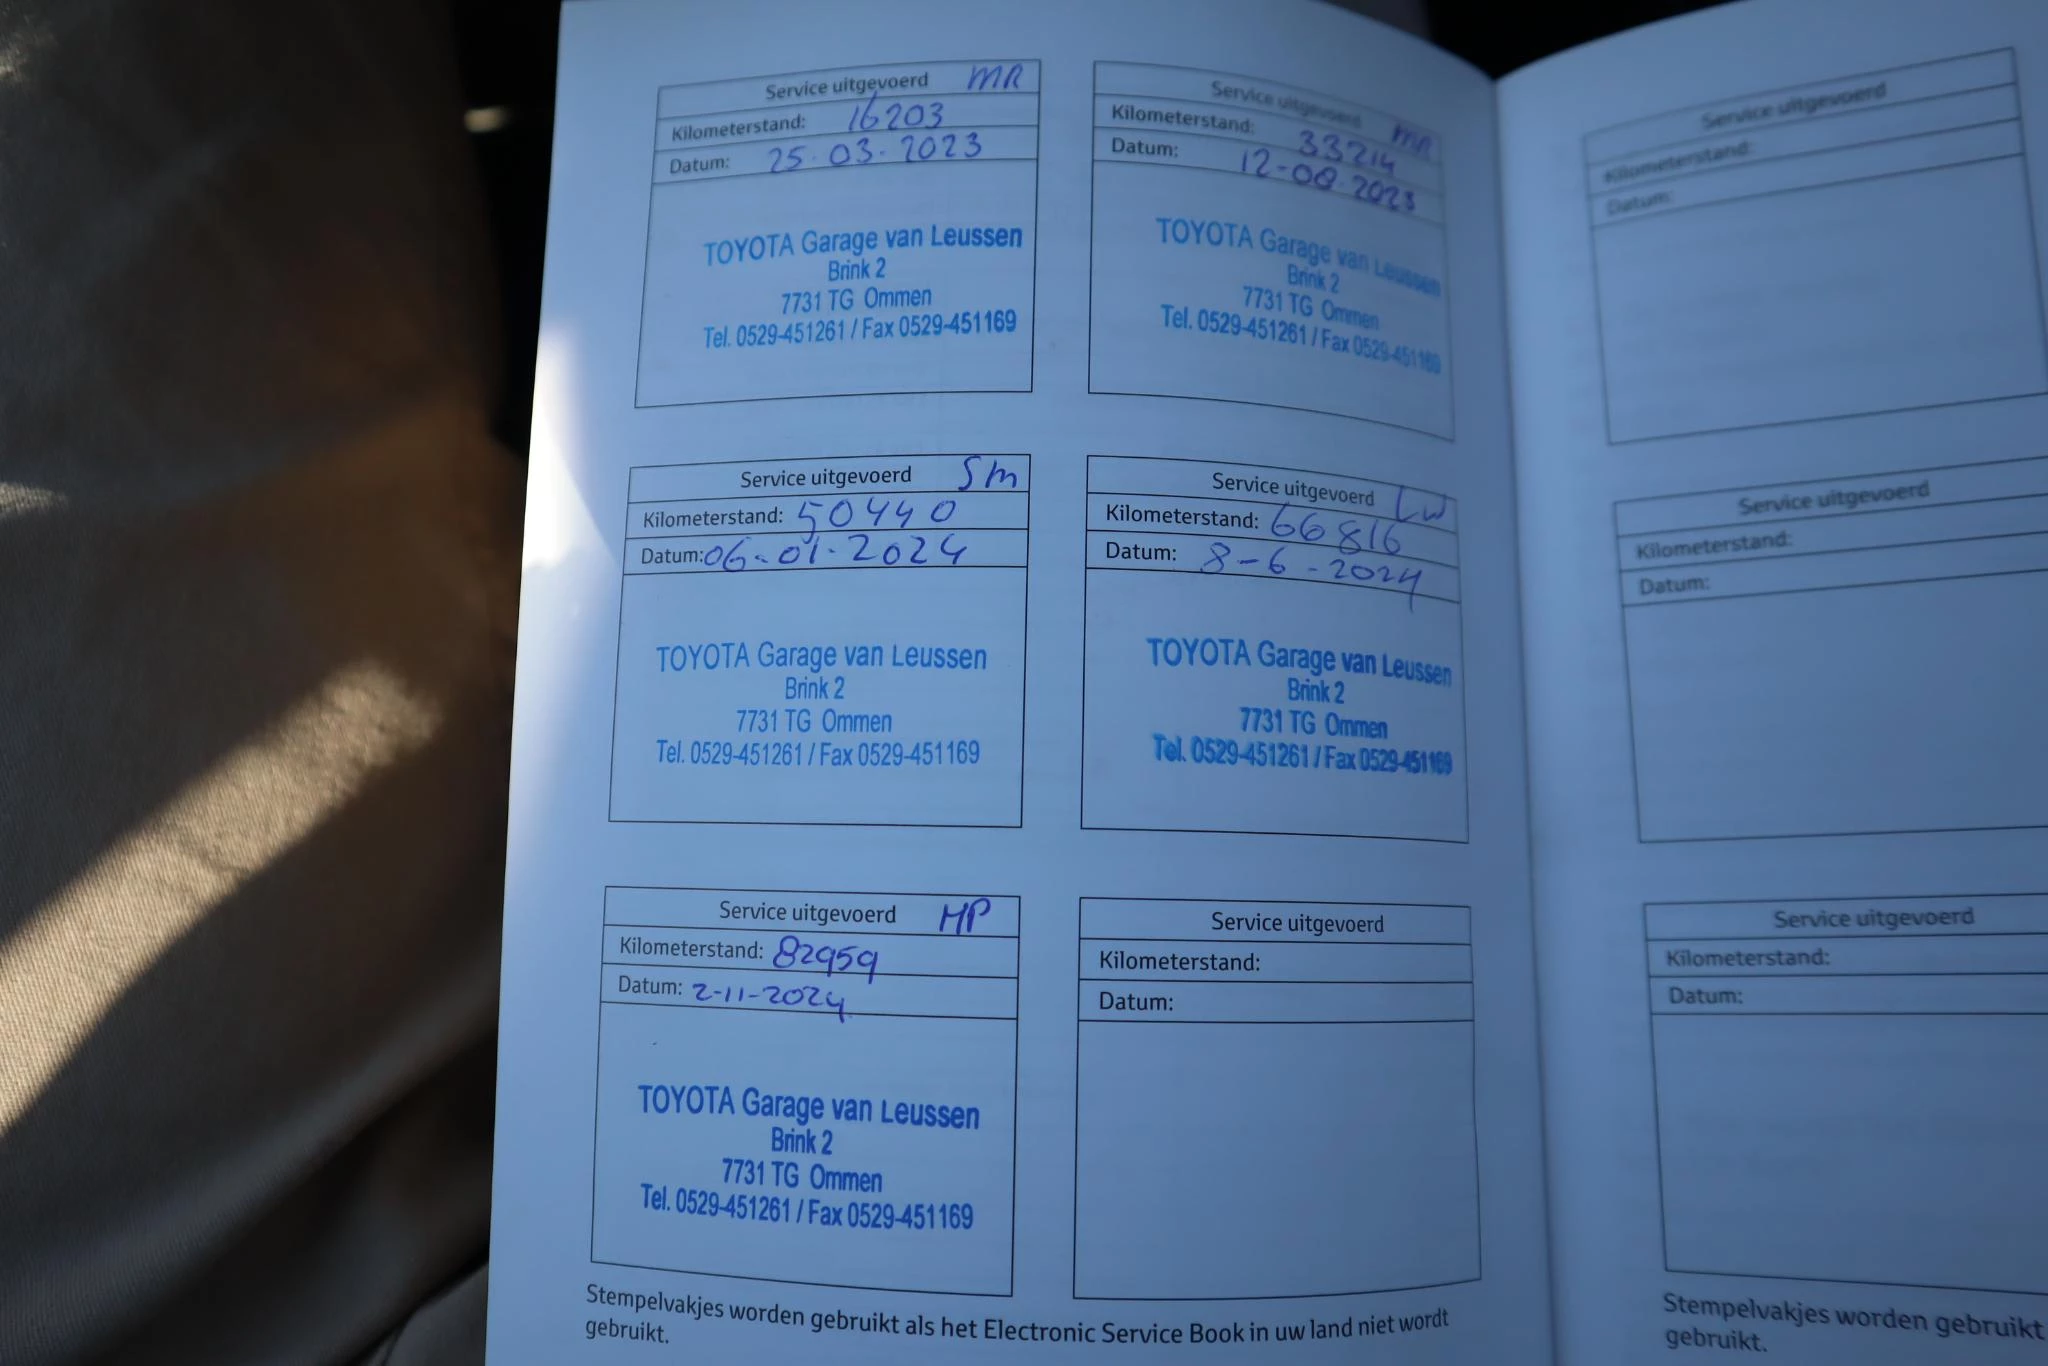 Service uitgevoerd MR
Kilometerstand: 16203
Datum: 25-03-2023
TOYOTA Garage van Leussen
Brink 2
7731 TG Ommen
Tel. 0529-451261 / Fax 0529-451169
Service uitgevoerd MR
Kilometerstand: 33214
Datum: 12-08-2023
TOYOTA Garage van Leussen
Brink 2
7731 TG Ommen
Tel. 0529-451261 / Fax 0529-451169
Service uitgevoerd SM
Kilometerstand: 50440
Datum: 06-01-2024
TOYOTA Garage van Leussen
Brink 2
7731 TG Ommen
Tel. 0529-451261 / Fax 0529-451169
Service uitgevoerd LW
Kilometerstand: 66816
Datum: 8-6-2024
TOYOTA Garage van Leussen
Brink 2
7731 TG Ommen
Tel. 0529-451261 / Fax 0529-451169
Service uitgevoerd HP
Kilometerstand: 82959
Datum: 2-11-2024
TOYOTA Garage van Leussen
Brink 2
7731 TG Ommen
Tel. 0529-451261 / Fax 0529-451169
Service uitgevoerd
Kilometerstand:
Datum:
Stempelvakjes worden gebruikt als het Electronic Service Book in uw land niet wordt
gebruikt.
Service uitgevoerd
Kilometerstand:
Datum:
Service uitgevoerd
Kilometerstand:
Datum:
Service uitgevoerd
Kilometerstand:
Datum:
Stempelvakjes worden gebruikt
gebruikt.